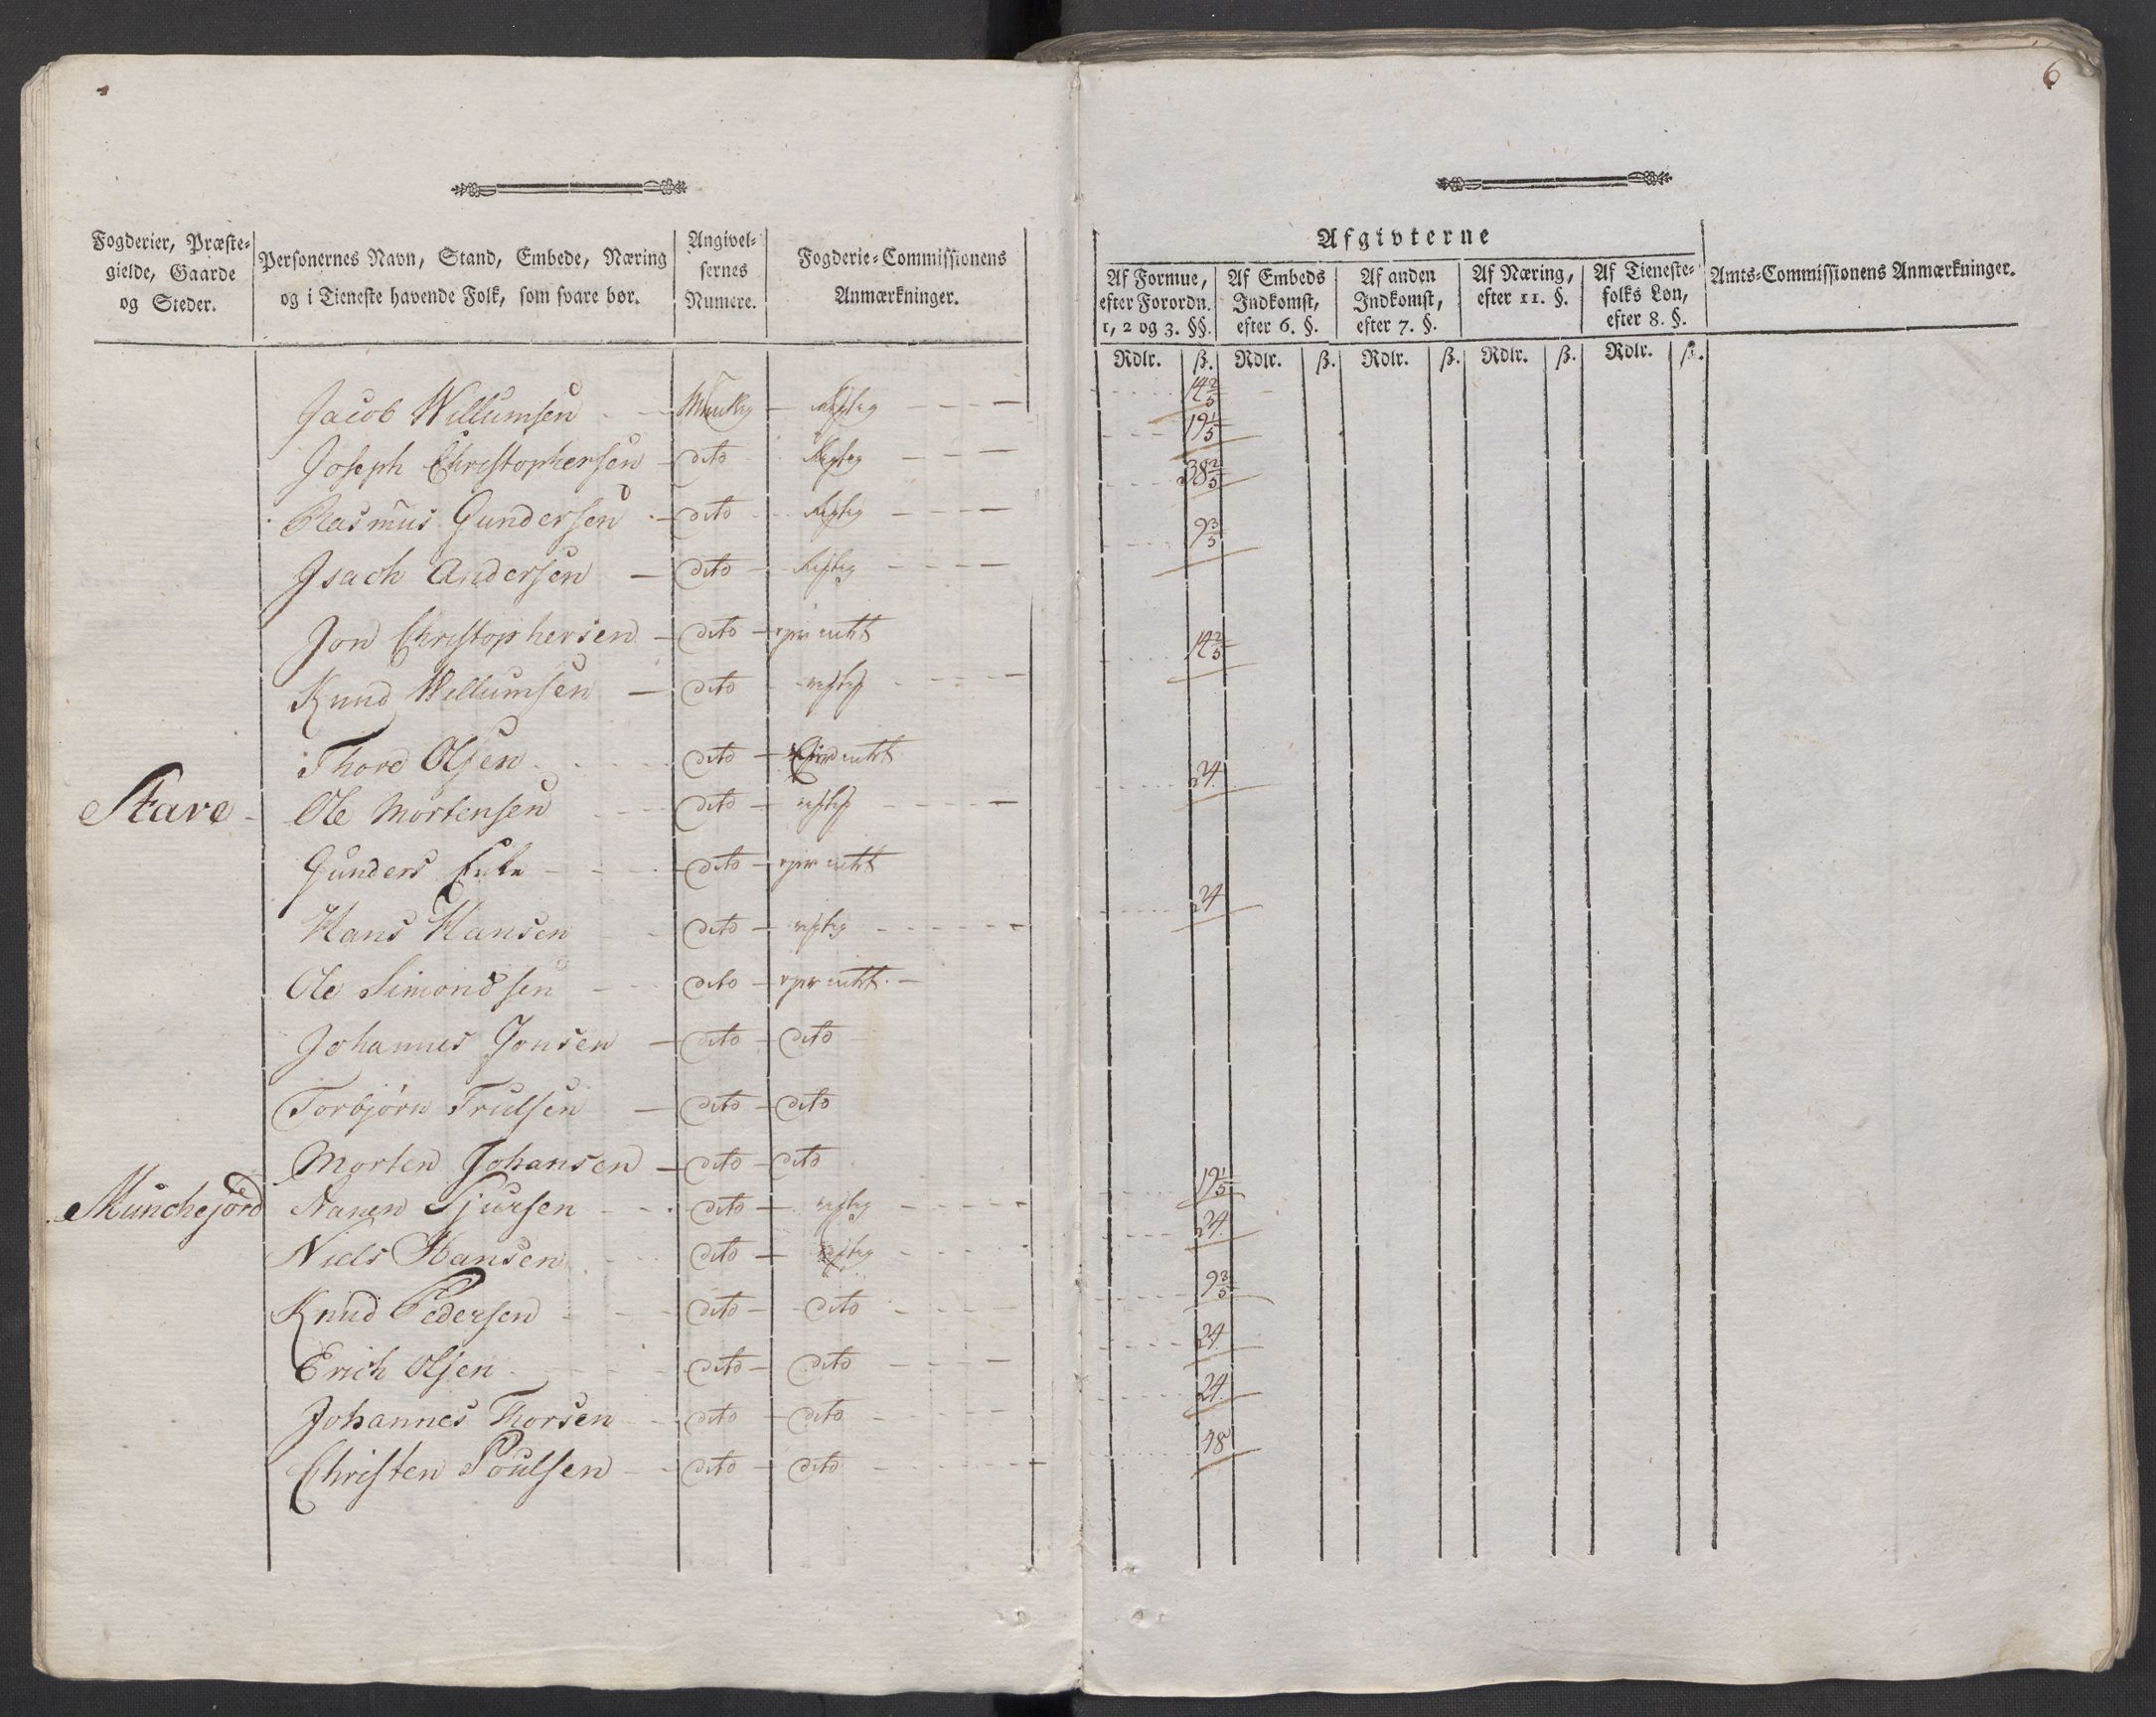 6
Fogderier, Præste-
gielde, Gaarde
og Steder.
Personernes Navn, Stand, Embede, Næring
og i Tieneste havende Folk, som svare bør.
Angivel-
sernes
Numere.
Fogderie-Commissionens
Anmærkninger.
Afgivterne
Af Formue,
efter Forordn.
1, 2 og 3. §§.
Af Embeds
Indkomst,
efter 6. §.
Af anden
Indkomst,
efter 7. §.
Af Næring,
efter 11. §.
Af Tieneste-
folks Løn,
efter 8. §.
Amts-Commissionens Anmærkninger.
Rdlr. ß. Rdlr. ß. Rdlr. ß. Rdlr. ß. Rdlr. ß.
Jacob Willumsen 14 2/5
Joseph Christophersen dito 19 1/5
Rasmus Gundersen dito 38 2/5
Isach Andersen dito 9 3/5
Jon Christophersen dito
Knud Willumsen dito 14 2/5
Thore Olsen dito
Stave Ole Mortensen dito 24
Gunders Enke dito
Hans Hansen dito 24
Ole Simondsen dito
Johannes Jonsen dito dito
Torbjørn Trulsen dito dito
Morten Johansen dito dito
Munchejord Nanen Sjursen dito 19 1/5
Niels Hansen dito 24
Knud Pedersen dito dito 9 3/5
Erich Olsen dito dito 24
Johannes Thorsen dito dito 24
Christen Poulsen dito dito 48